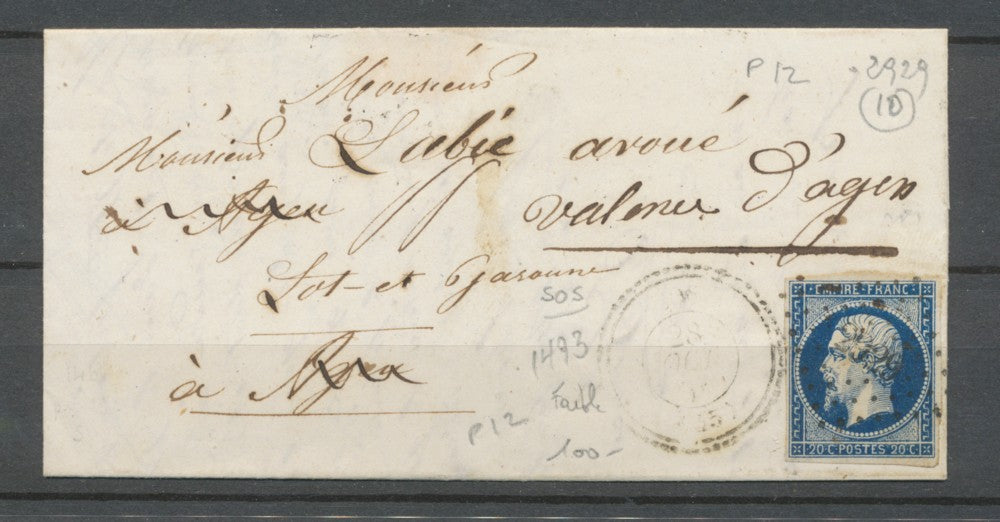 Monsieur
P12 2929
(10)
Monsieur Labie avoué
à Agen Valence D'agen
Lot-et Garonne
SOS
1493
à Agen
Faible
P12
100-
28
EMPIRE-FRANC
20 C POSTES 20 C